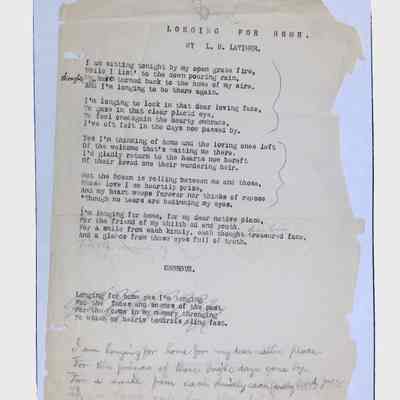 LONGING FOR HOME.
BY L. H. LATIMER.
I am sitting tonight by my open grate fire,
While I list' to the down pouring rain,
thoughts
My have turned back to the home of my sire,
And I'm longing to be there again.
I'm longing to look in that dear loving face,
To gaze in that clear placid eye,
To feel onceagain the hearty embrace,
I've oft felt in the days now passed by.
Yes I'm thinking of home and the loving ones left
Of the welcome that's waiting me there.
I'd gladly return to the hearts now bereft
Of their loved one their wandering heir.
But the Ocean is rolling between me and those,
Whose love I so heartily prize,
And my heart weeps forever nor thinks of repose
Though no tears are bedimming my eyes.
I'm longing for home, for my dear native place,
For the friend of my childhood and youth.
For a smile from each kindly, each thought treasured face,
And a glance from those eyes full of truth.
CHORUS.
Longing for home yes I'm longing
For the faces and scenes of the past
For the forms in my memory thronging
To which my hearts tendrils cling fast.
I am longing for home for my dear native place
For the friends of those bright days gone by.
For a smile from each kindly each face